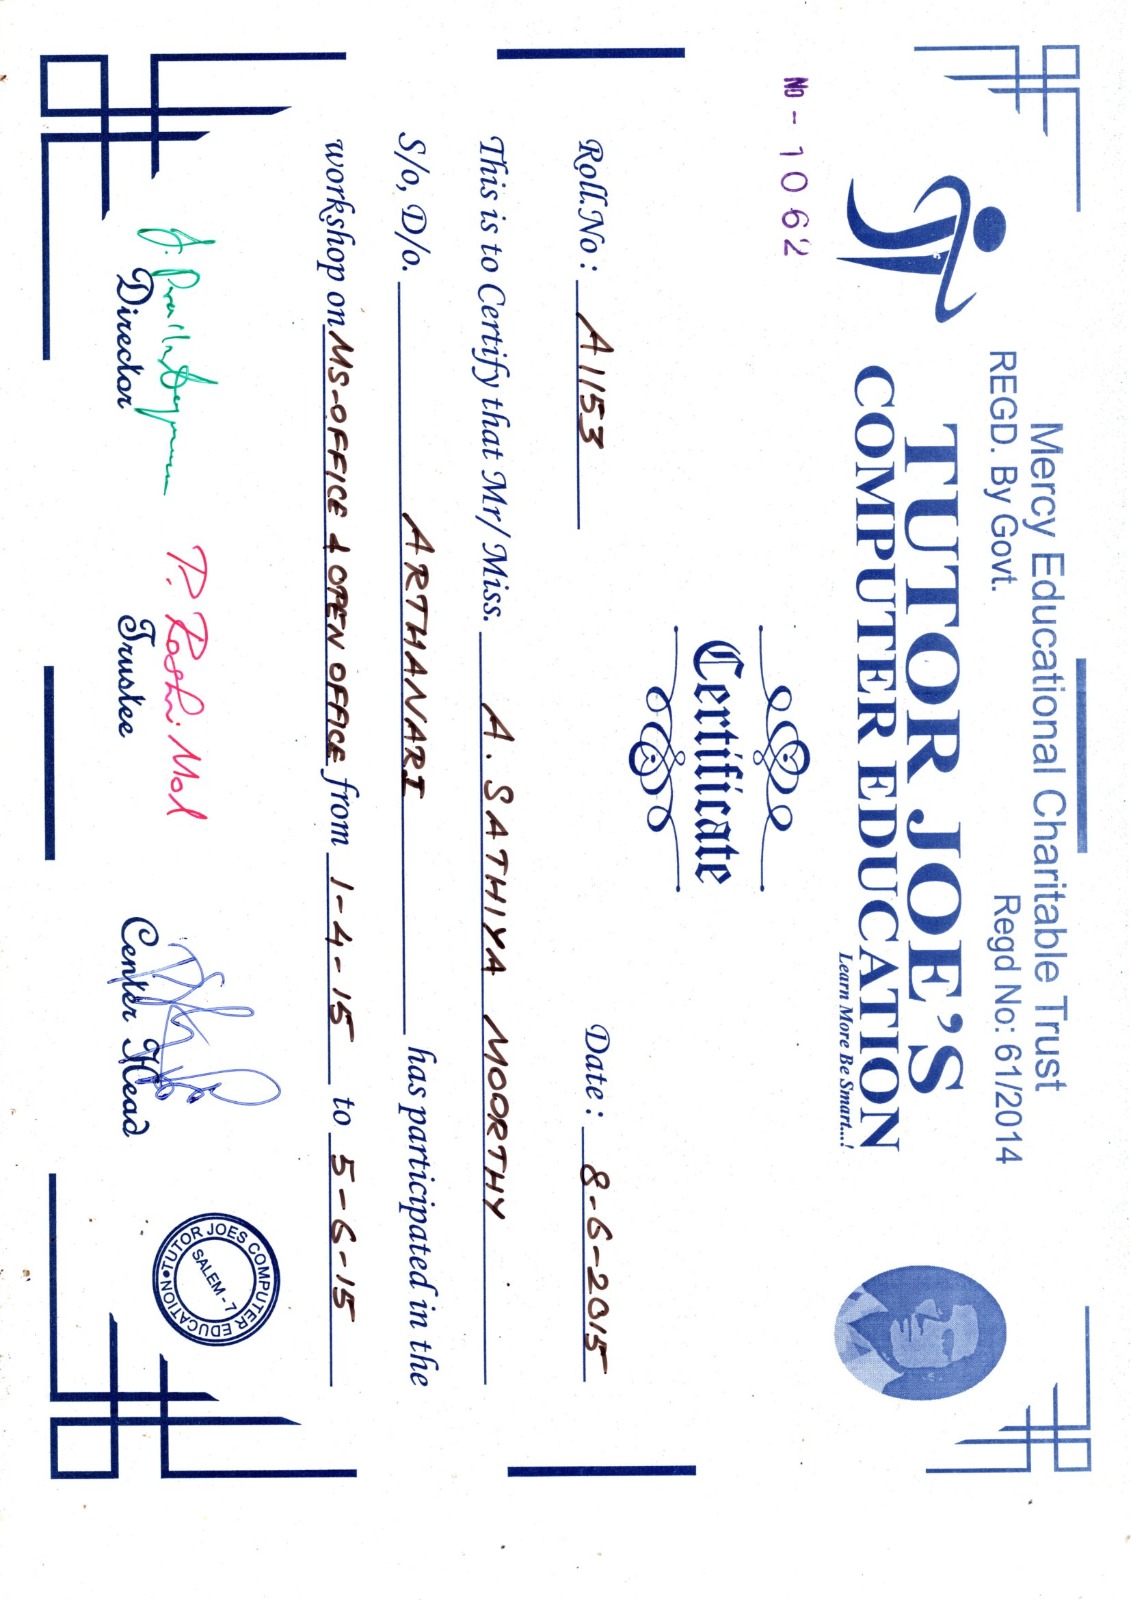 Mercy Educational Charitable Trust
REGD. By Govt. Regd No: 61/2014
TUTOR JOE'S
COMPUTER EDUCATION
Learn More Be Smart...!
No - 1062
Certificate
Roll.No : A1153 Date : 8-6-2015
This is to Certify that Mr/ Miss. A. SATHIYA MOORTHY
S/o, D/o. ARTHANARI has participated in the
workshop on MS-OFFICE & OPEN OFFICE from 1-4-15 to 5-6-15
P. Roshi Mol
Director Trustee Center Head
TUTOR JOES COMPUTER EDUCATION
SALEM - 7